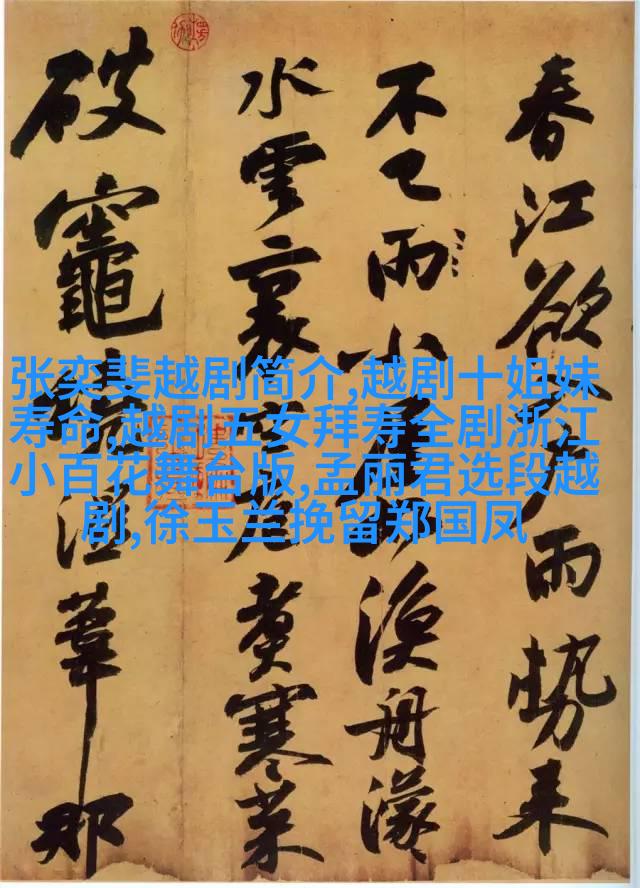 春江欲入戶雨勢來
不已雨小屋如漁舟濛
水雲裏空庖煮寒菜
破竈燒濕葦那
张奕斐越剧简介,越剧十姐妹
寿命,越剧五女拜寿全剧浙江
小百花舞台版,孟丽君选段越
剧,徐玉兰挽留郑国凤